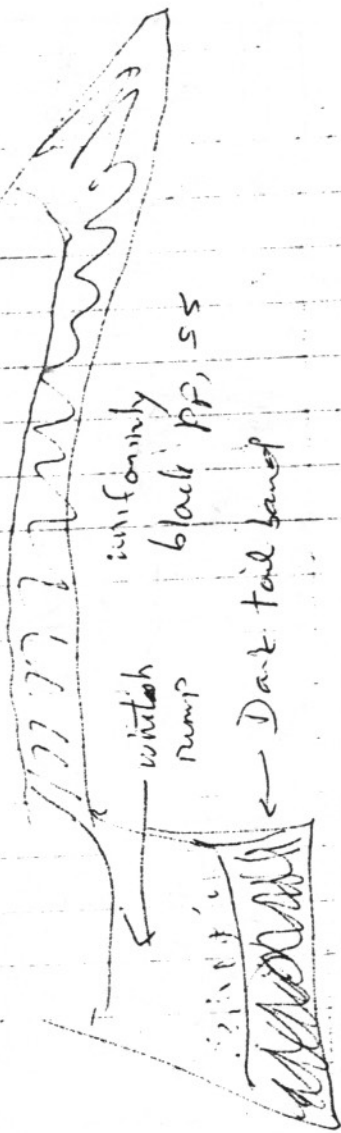 uniformly
black pp, ss
whitish
rump
Dark tail band